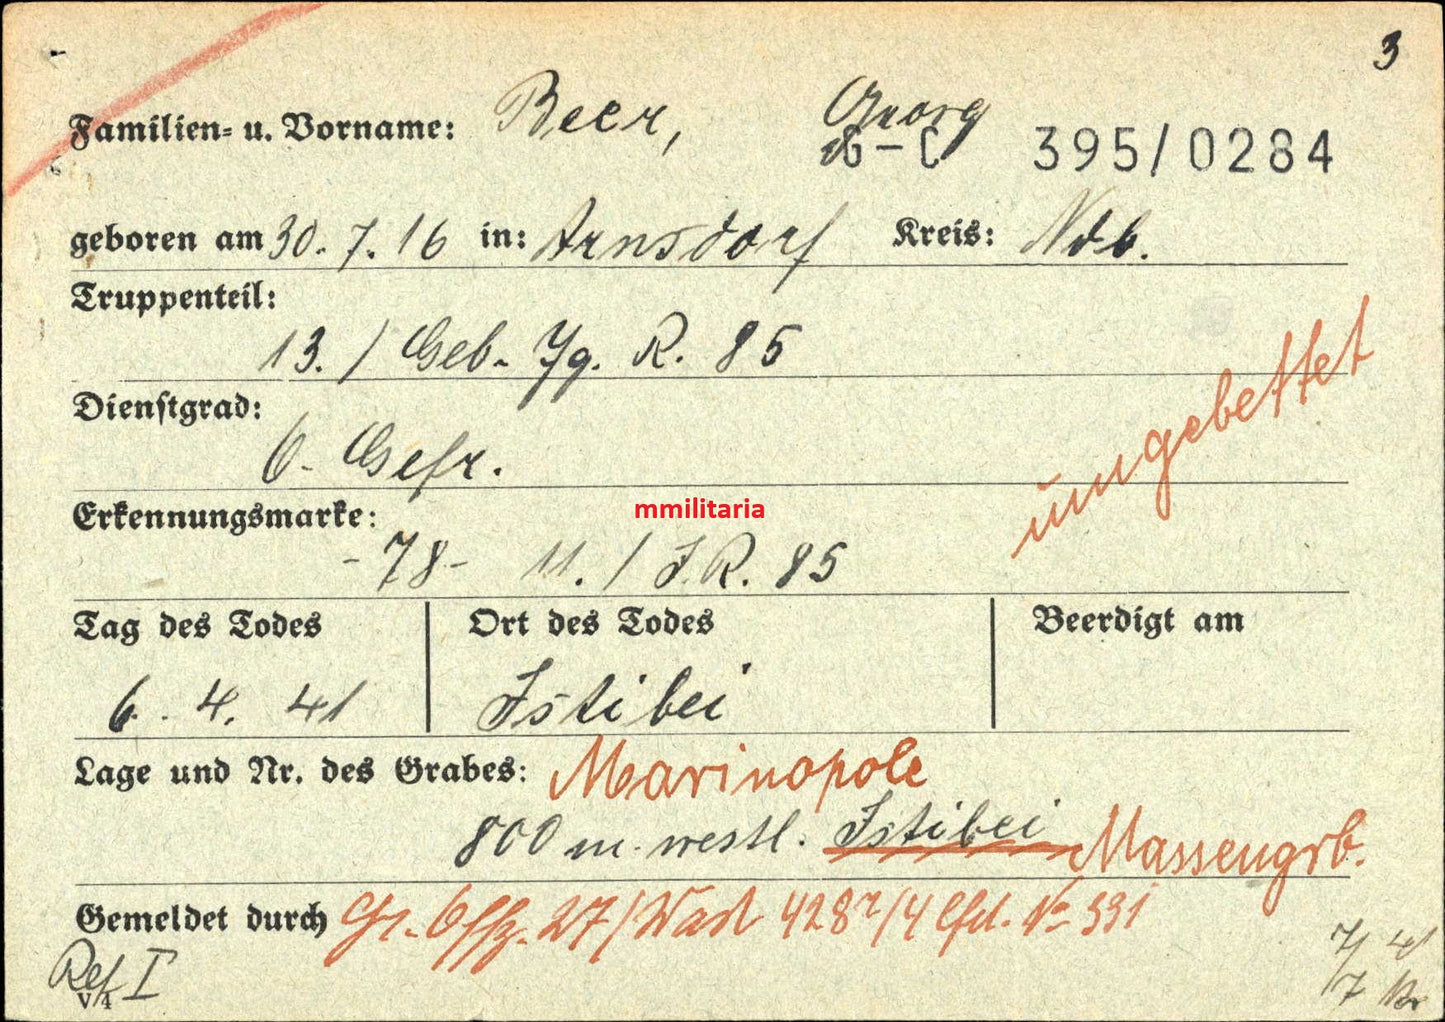 3
Familien- u. Vorname: Beer, Georg
G-C 395/0284
geboren am 30.7.16 in: Arnsdorf Kreis: Ndb.
Truppenteil:
13. / Geb. Jg. R. 85
Dienstgrad:
O. Gefr.
umgebettet
Erkennungsmarke:
mmilitaria
-78- 11. / J.R. 85
Tag des Todes Ort des Todes Beerdigt am
6. 4. 41 Istibei
Lage und Nr. des Grabes: Marinopole
800 m westl. Istibei Massengrb.
Gemeldet durch Gr. Offz. 27/Wast 428 /4 lfd. No 331
Ref I
V/4
7/41
7